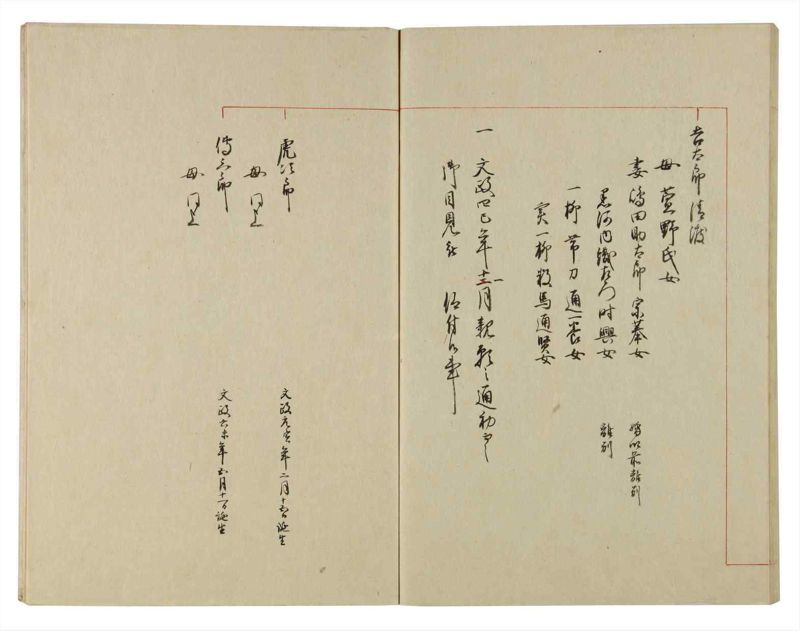 吉太郎清渡
母 萱野氏女
妻 嶋田助太郎宗葊女 婚以前離別
黒河内織右衛門時興女 離別
一柳帯刀通養女
実一柳数馬通賢女
一 文政四巳年十二月親願之通初而
御目見被 仰付候事
虎次郎 文政元寅年二月十五日誕生
母 同上
傳三郎 文政六未年 月十一日誕生
母 同上